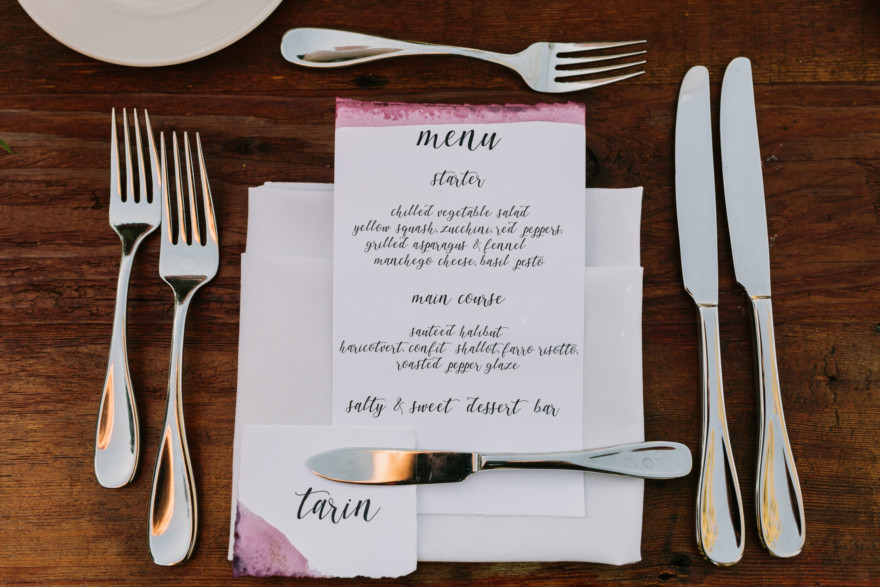 menu
starter
chilled vegetable salad
yellow squash, zucchini, red peppers,
grilled asparagus & fennel
manchego cheese, basil pesto
main course
sauteed halibut
haricotvert, confit shallot, farro risotto,
roasted pepper glaze
salty & sweet dessert bar
tarin